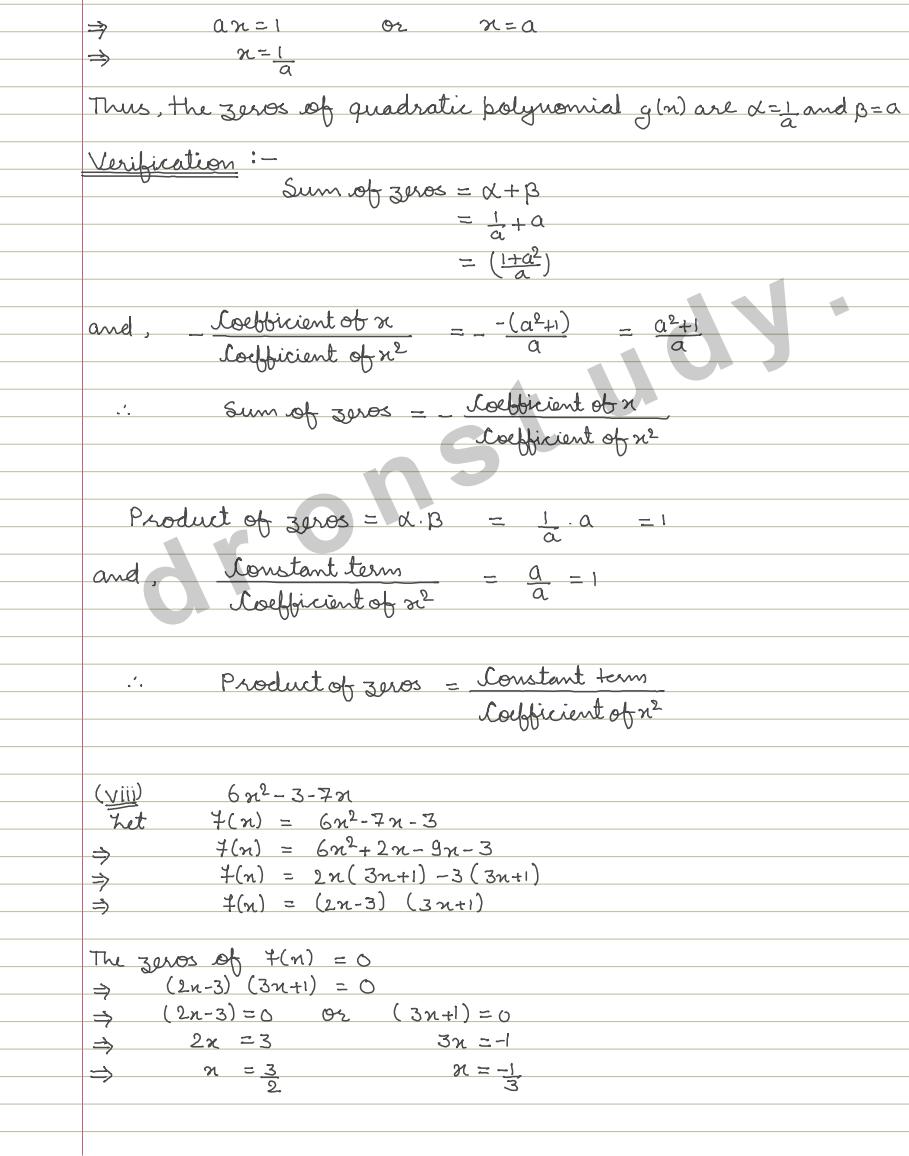 ⇒ ax = 1 or x = a
⇒ x = 1/a
Thus, the zeros of quadratic polynomial g(x) are α = 1/a and β = a
Verification :-
Sum of zeros = α + β
= 1/a + a
= ((1+a²)/a)
and, - Coefficient of x / Coefficient of x² = - -(a²+1)/a = (a²+1)/a
∴ Sum of zeros = - Coefficient of x / Coefficient of x²
Product of zeros = α.β = 1/a . a = 1
and, Constant term / Coefficient of x² = a/a = 1
∴ Product of zeros = Constant term / Coefficient of x²
(viii) 6x² - 3 - 7x
Let f(x) = 6x² - 7x - 3
⇒ f(x) = 6x² + 2x - 9x - 3
⇒ f(x) = 2x(3x+1) - 3(3x+1)
⇒ f(x) = (2x-3) (3x+1)
The zeros of f(x) = 0
⇒ (2x-3) (3x+1) = 0
⇒ (2x-3) = 0 or (3x+1) = 0
⇒ 2x = 3 3x = -1
⇒ x = 3/2 x = -1/3
dronstudy.